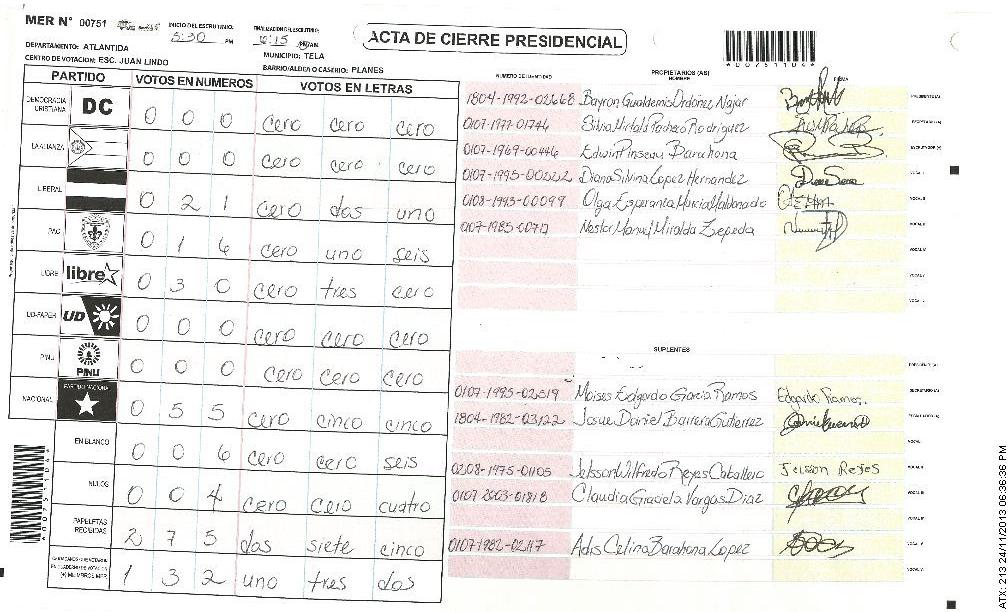 MER N° 00751
INICIO DEL ESCRUTINIO: 5:30 PM
FINALIZACION DEL ESCRUTINIO: 6:15 PM/AM
ACTA DE CIERRE PRESIDENCIAL
DEPARTAMENTO: ATLANTIDA
MUNICIPIO: TELA
CENTRO DE VOTACION: ESC. JUAN LINDO
BARRIO/ALDEA O CASERIO: PLANES
PARTIDO VOTOS EN NUMEROS VOTOS EN LETRAS
DEMOCRACIA CRISTIANA DC 0 0 0 cero cero cero
LA ALIANZA 0 0 0 cero cero cero
LIBERAL 0 2 1 cero dos uno
PAC 0 1 6 cero uno seis
LIBRE libre 0 3 0 cero tres cero
UD-FAPER UD 0 0 0 cero cero cero
PINU PINU 0 0 0 cero cero cero
NACIONAL PARTIDO NACIONAL 0 5 5 cero cinco cinco
EN BLANCO 0 0 6 cero cero seis
NULOS 0 0 4 cero cero cuatro
PAPELETAS RECIBIDAS 2 7 5 dos siete cinco
(+) MIEMBROS MER 1 3 2 uno tres dos
NUMERO DE IDENTIDAD PROPIETARIOS (AS) NOMBRE FIRMA
1804-1992-02668 Bayron Gualdemis Ordóñez Najar PRESIDENTE (A)
0107-1977-01746 Silvia Mirtala Pacheco Rodriguez SECRETARIO (A)
0107-1969-00446 Edwin Pinseau Barahona ESCRUTADOR (A)
0107-1995-00222 Diana Silvina Lopez Hernandez VOCAL I
0108-1993-00099 Olga Esperanza Murcia Maldonado VOCAL II
0107-1985-00717 Nestor Manuel Miralda Zepeda
SUPLENTES
0107-1995-02519 Moises Edgardo Garcia Ramos Edgardo Ramos. SECRETARIO (A)
1804-1982-03122 Josue Daniel Barrera Gutierrez
0208-1975-01105 Jelsson Wilfredo Reyes Caballero Jelsson Reyes
0107-2003-01818 Claudia Graciela Vargas Diaz
0107-1982-02117 Adis Celina Barahona Lopez
ATX: 213 24/11/2013 06:36:36 PM